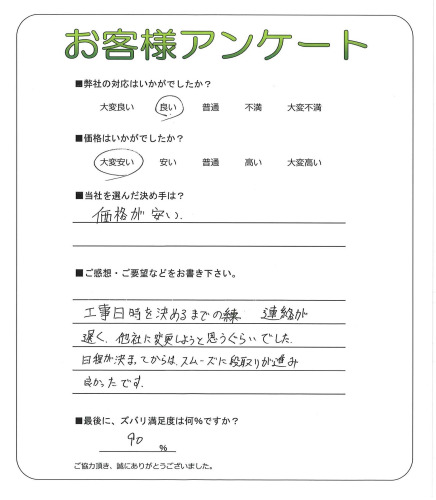 お客様アンケート
■弊社の対応はいかがでしたか？
大変良い 良い 普通 不満 大変不満
■価格はいかがでしたか？
大変安い 安い 普通 高い 大変高い
■当社を選んだ決め手は？
価格が安い.
■ご感想・ご要望などをお書き下さい。
工事日時を決めるまでの 連絡が
遅く、他社に変更しようと思うぐらいでした.
日程が決まってからは、スムーズに段取りが進み
良かったです.
■最後に、ズバリ満足度は何%ですか？
90 %
ご協力頂き、誠にありがとうございました。